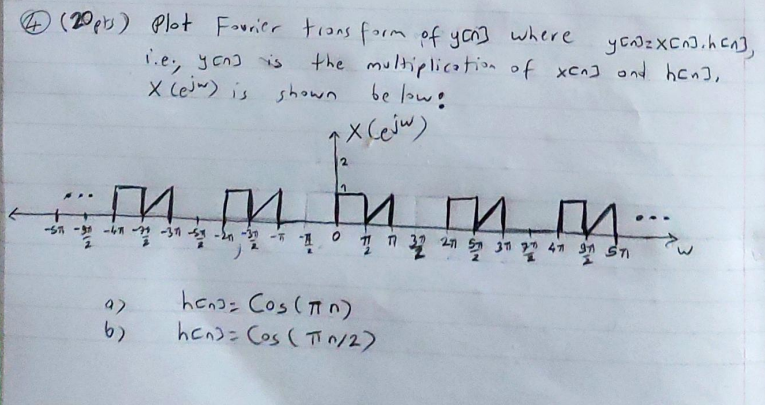 ④ (20pts) Plot Fourier transform of y[n] where y[n]=x[n].h[n],
i.e., y[n] is the multiplication of x[n] and h[n],
X(e^jw) is shown below:
X(e^jw)
2
1
... ...
-5π -9π/2 -4π -7π/2 -3π -5π/2 -2π -3π/2 -π -π/2 0 π/2 π 3π/2 2π 5π/2 3π 7π/2 4π 9π/2 5π w
a) h[n]= Cos(πn)
b) h[n]= Cos(πn/2)